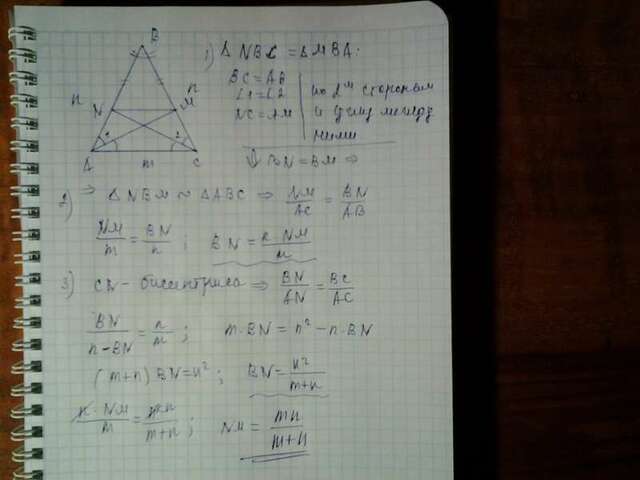 B
n
n
N
M
A
m
C
1) Δ NBC = Δ MBA:
BC = AB
∠1 = ∠2
NC = AM
по 2ᵐ сторонам
и углу между
ними
⇓ BN = BM ⇒
2) ⇒ Δ NBM ~ Δ ABC ⇒ NM/AC = BN/AB
NM/m = BN/n ; BN = n·NM/m
3) CN - биссектриса ⇒ BN/AN = BC/AC
BN/(n-BN) = n/m ; m·BN = n² - n·BN
(m+n) BN = n² ; BN = n²/(m+n)
n·NM/m = n²/(m+n) ; NM = mn/(m+n)